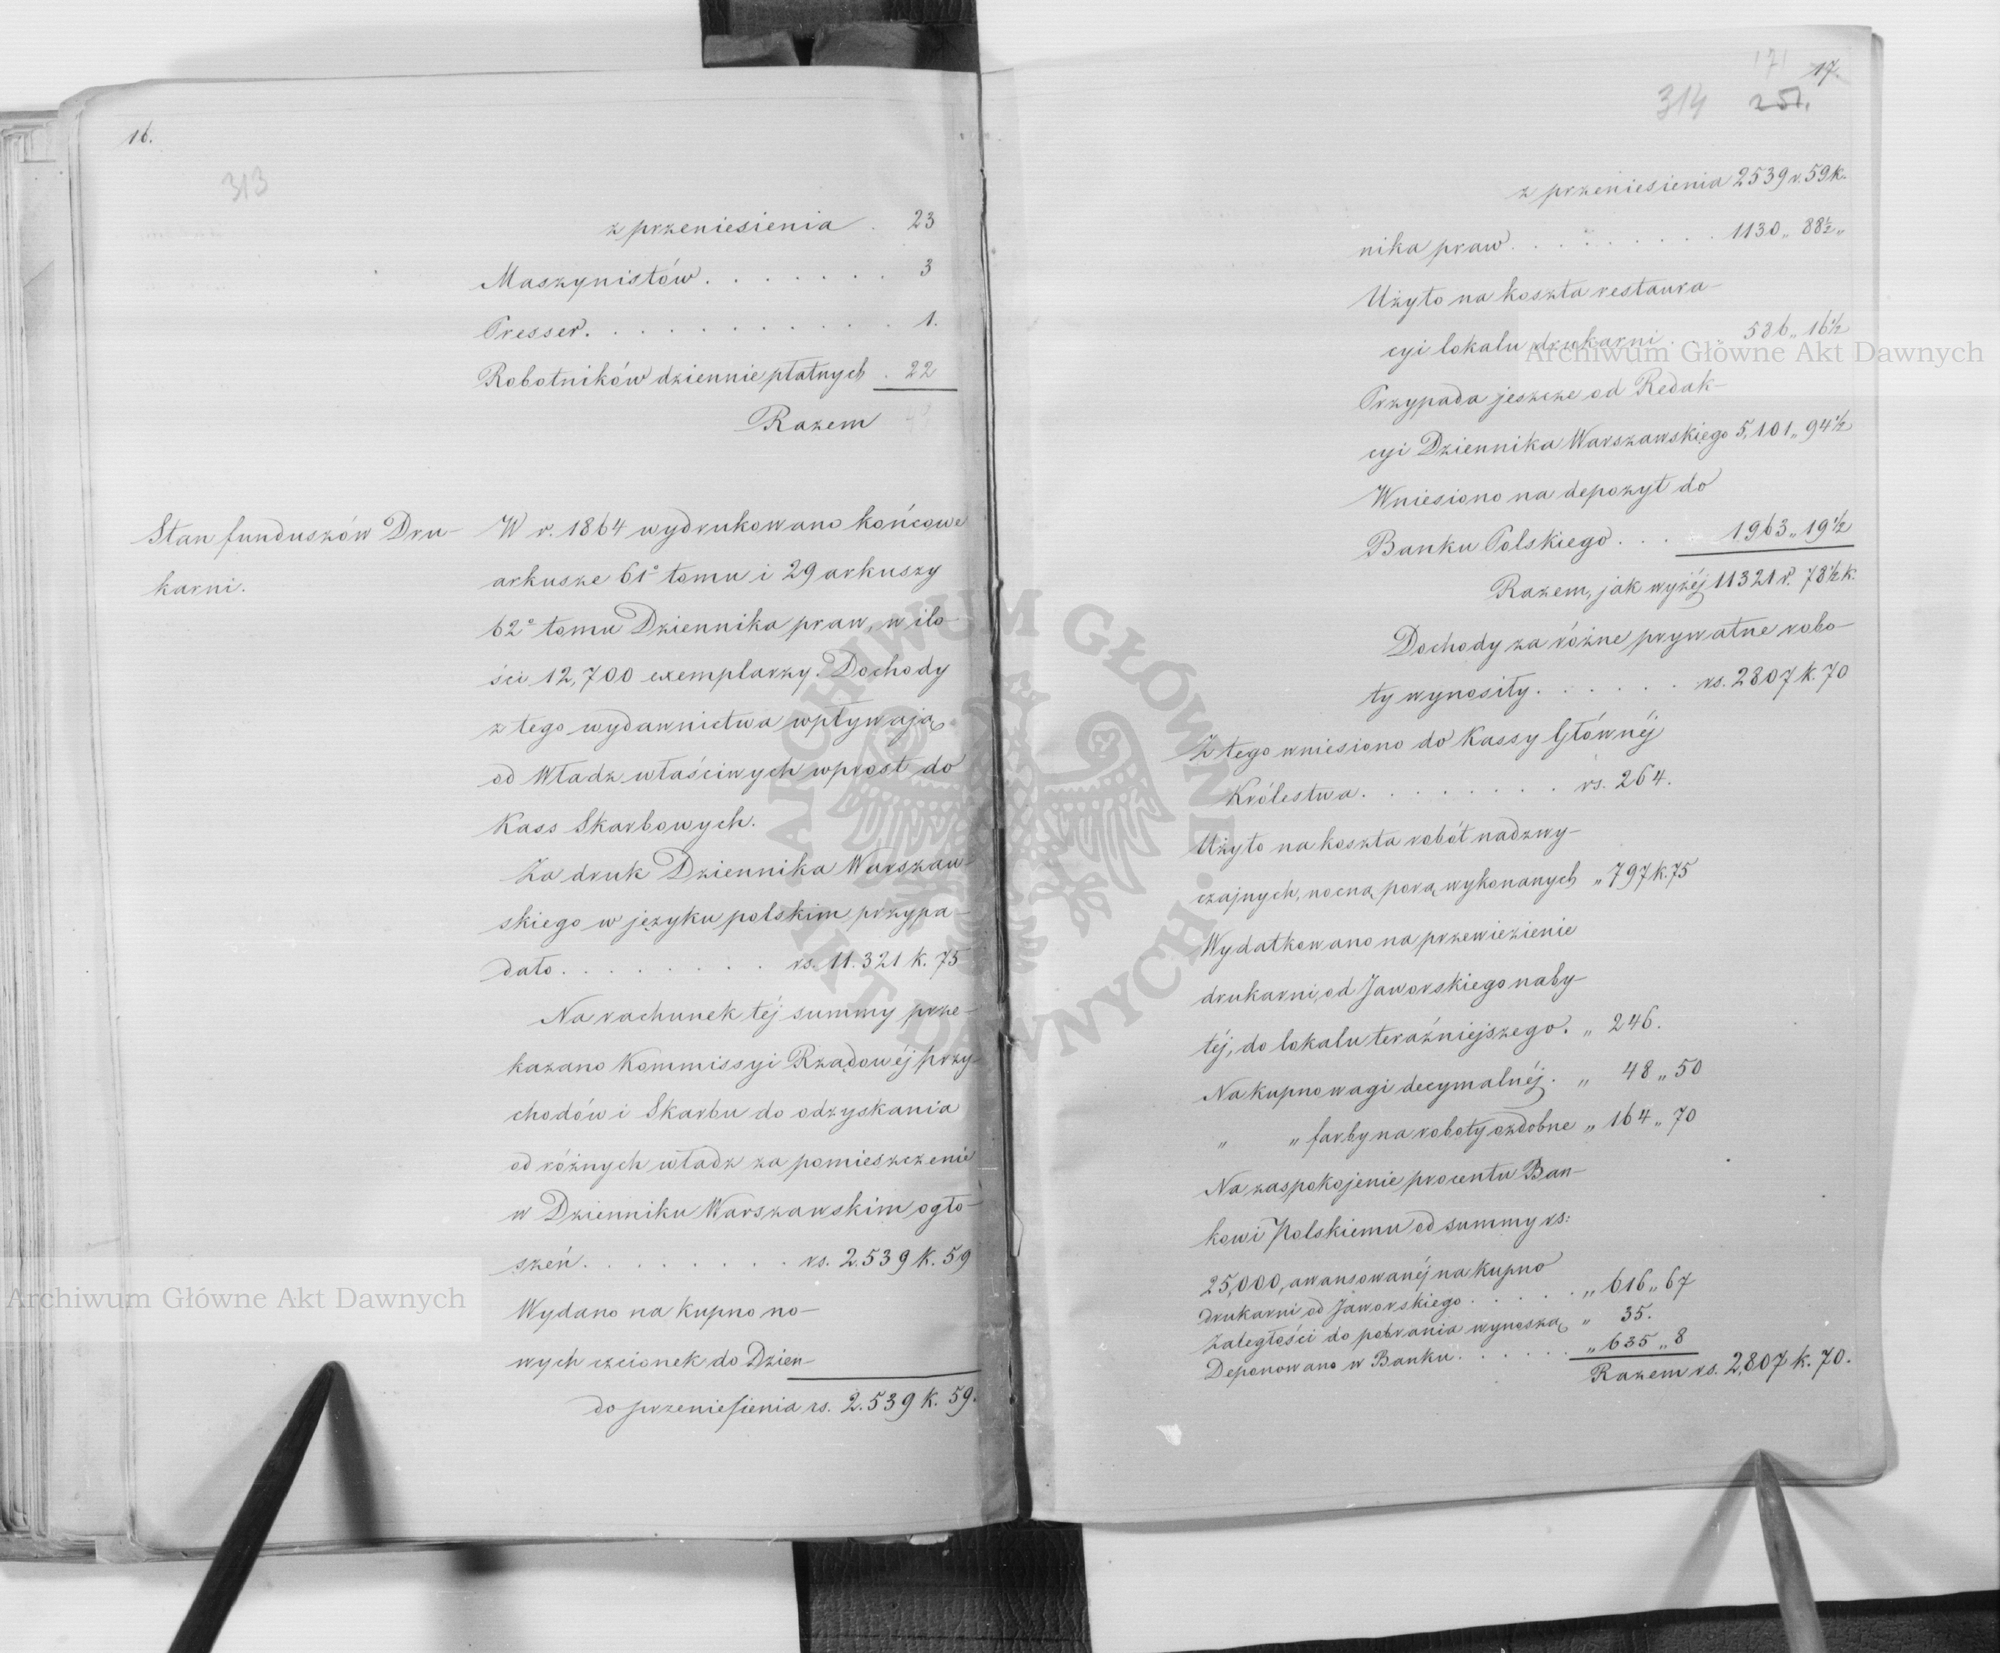 16.
313
z przeniesienia . 23
Maszynistów . . . . . . . 3
Presser . . . . . . . . . . . 1.
Robotników dziennie płatnych . 22
Razem 49
Stan funduszów Dru-
karni.
W r. 1864 wydrukowano końcowe
arkusze 61º tomu i 29 arkuszy
62º tomu Dziennika praw, w ilo-
ści 12,700 exemplarzy. Dochody
z tego wydawnictwa wpływają
od Władz właściwych wprost do
Kass Skarbowych.
Za druk Dziennika Warszaw-
skiego w języku polskim przypa-
dało . . . . . . . . rs. 11.321 k. 75
Na rachunek téj summy prze-
kazano Kommissyi Rządowéj przy-
chodów i Skarbu do odzyskania
od różnych władz za pomieszczenie
w Dzienniku Warszawskim ogło-
szeń . . . . . . . . rs. 2.539 k. 59
Wydano na kupno no-
wych czcionek do Dzien-
do przeniesienia rs. 2.539 k. 59.
171 17.
314 251.
z przeniesienia 2539 r. 59 k.
nika praw . . . . . . . . 1130 „ 88½ „
Użyto na koszta restaura-
cyi lokalu drukarni . . 586 „ 16½
Przypada jeszcze od Redak-
cyi Dziennika Warszawskiego 5,101 „ 94½
Wniesiono na depozyt do
Banku Polskiego . . . 1,963 „ 19½
Razem, jak wyżéj 11321 r. 78½ k.
Dochody za różne prywatne robo-
ty wynosiły . . . . . . rs. 2807 k. 70
Z tego wniesiono do Kassy Głównéj
Królestwa . . . . . . . . rs. 264.
Użyto na koszta robót nadzwy-
czajnych, nocną porą wykonanych „ 797 k. 75
Wydatkowano na przewiezienie
drukarni, od Jaworskiego naby-
téj, do lokalu teraźniejszego . „ 246.
Na kupno wagi decymalnéj . „ 48 „ 50
„ „ farby na roboty ozdobne „ 164 „ 70
Na zaspokojenie procentu Ban-
kowi Polskiemu od summy rs:
25,000, awansowanéj na kupno
drukarni od Jaworskiego . . . . . „ 616 „ 67
Zaległości do pobrania wynoszą „ 35.
Deponowano w Banku . . . . . . „ 635 „ 8
Razem rs. 2,807 k. 70.
Archiwum Główne Akt Dawnych
Archiwum Główne Akt Dawnych
ARCHIWUM GŁÓWNE AKT DAWNYCH